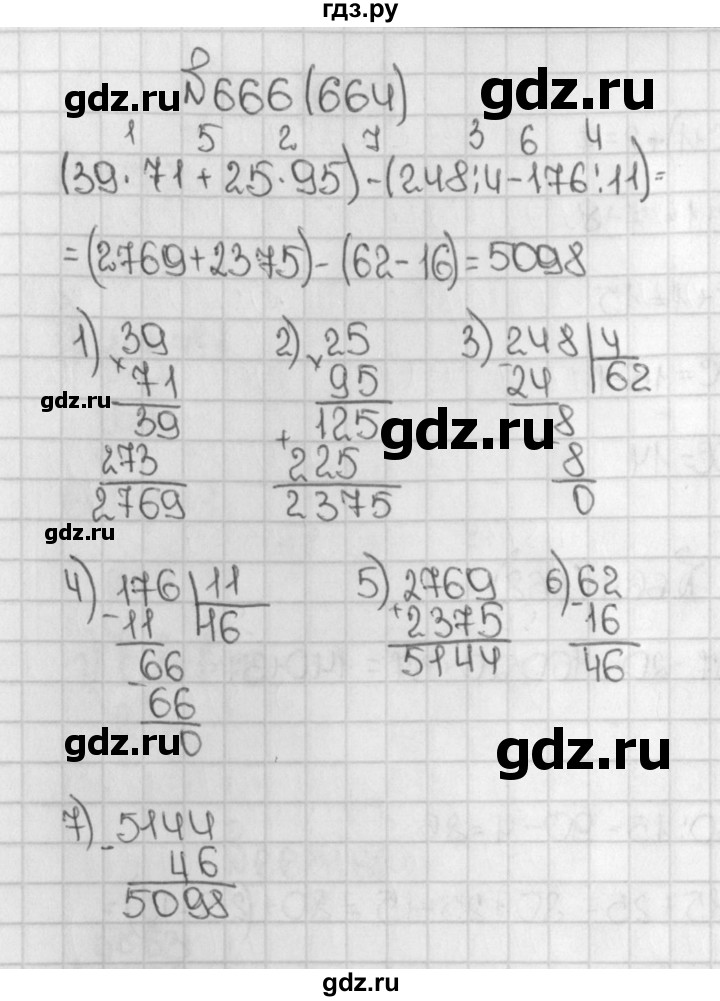 гдз.ру
№666 (664)
gdz.ru gdz.ru
1 5 2 7 3 6 4
(39·71+25·95)-(248:4-176:11)=
=(2769+2375)-(62-16)=5098
1) 39 2) 25 3) 248 | 4
×71 ×95 -24 | 62
39 125 8
gdz.ru gdz.ru
273 + 225 8
2769 2375 0
gdz.ru
4) 176 | 11 5) 2769 6) 62
-11 | 16 +2375 -16
66 5144 46
-66
0
gdz.ru gdz.ru
7) 5144
- 46
5098
gdz.ru